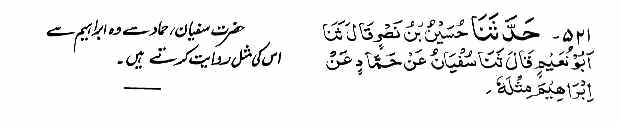 ۵۲۱ - حَدَّثَنَا حُسَيْنُ بْنُ نَصْرٍ قَالَ ثَنَا
اَبُوْ نُعَيْمٍ قَالَ ثَنَا سُفْيَانُ عَنْ حَمَّادٍ عَنْ
اِبْرَاهِيْمَ مِثْلَهٗ ۔
حضرت سفیان، حماد سے وہ ابراہیم سے
اس کی مثل روایت کرتے ہیں ۔